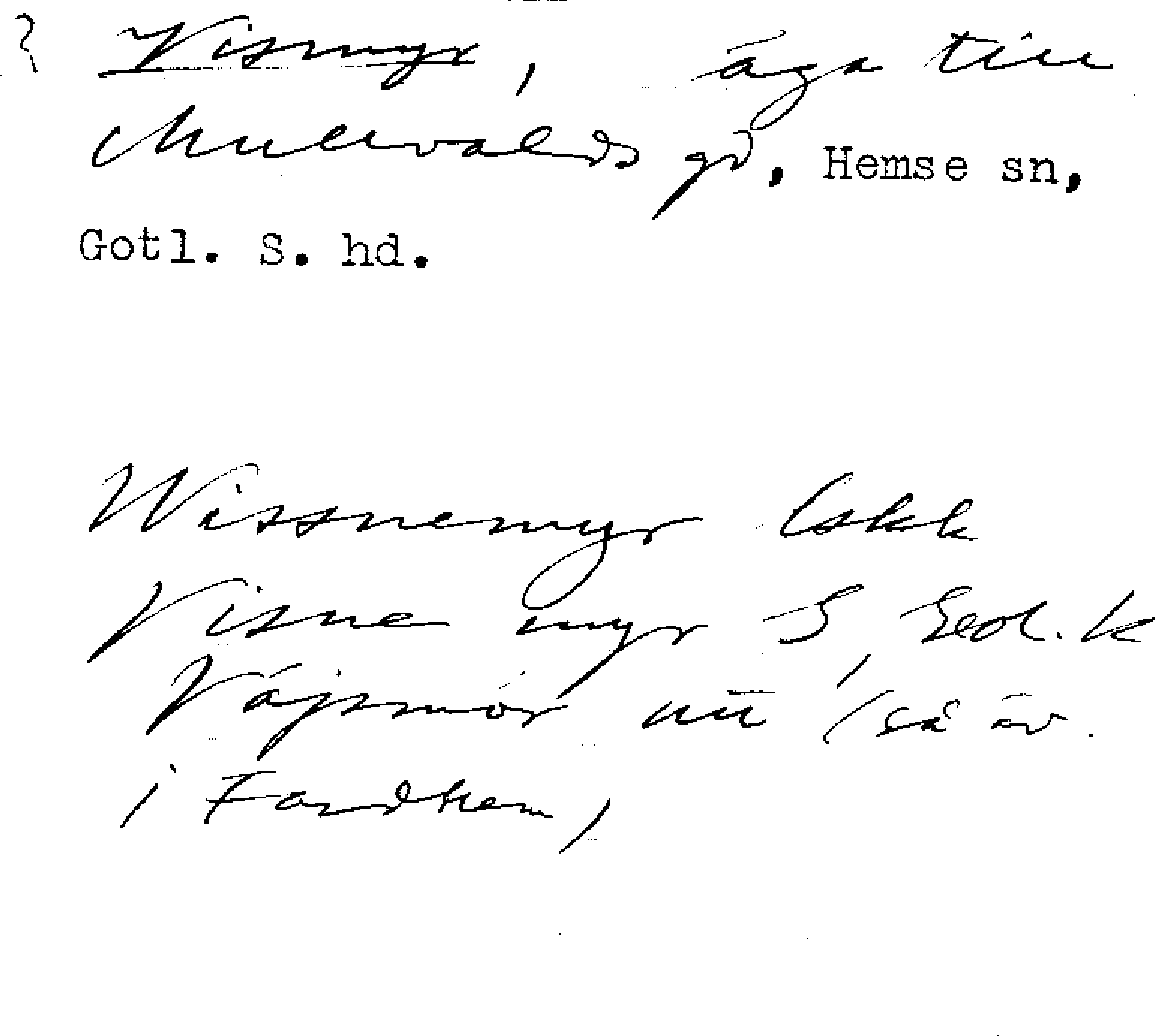 ? Vismyr, äga till
Mullvalds gd, Hemse sn,
Gotl. S. hd.
Wissnemyr Lskk
Visne myr S, Geol. k
Väjsmör nu (så äv.
i Fardhem)